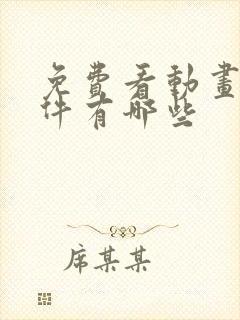 免費看動畫
件有哪些
席某某